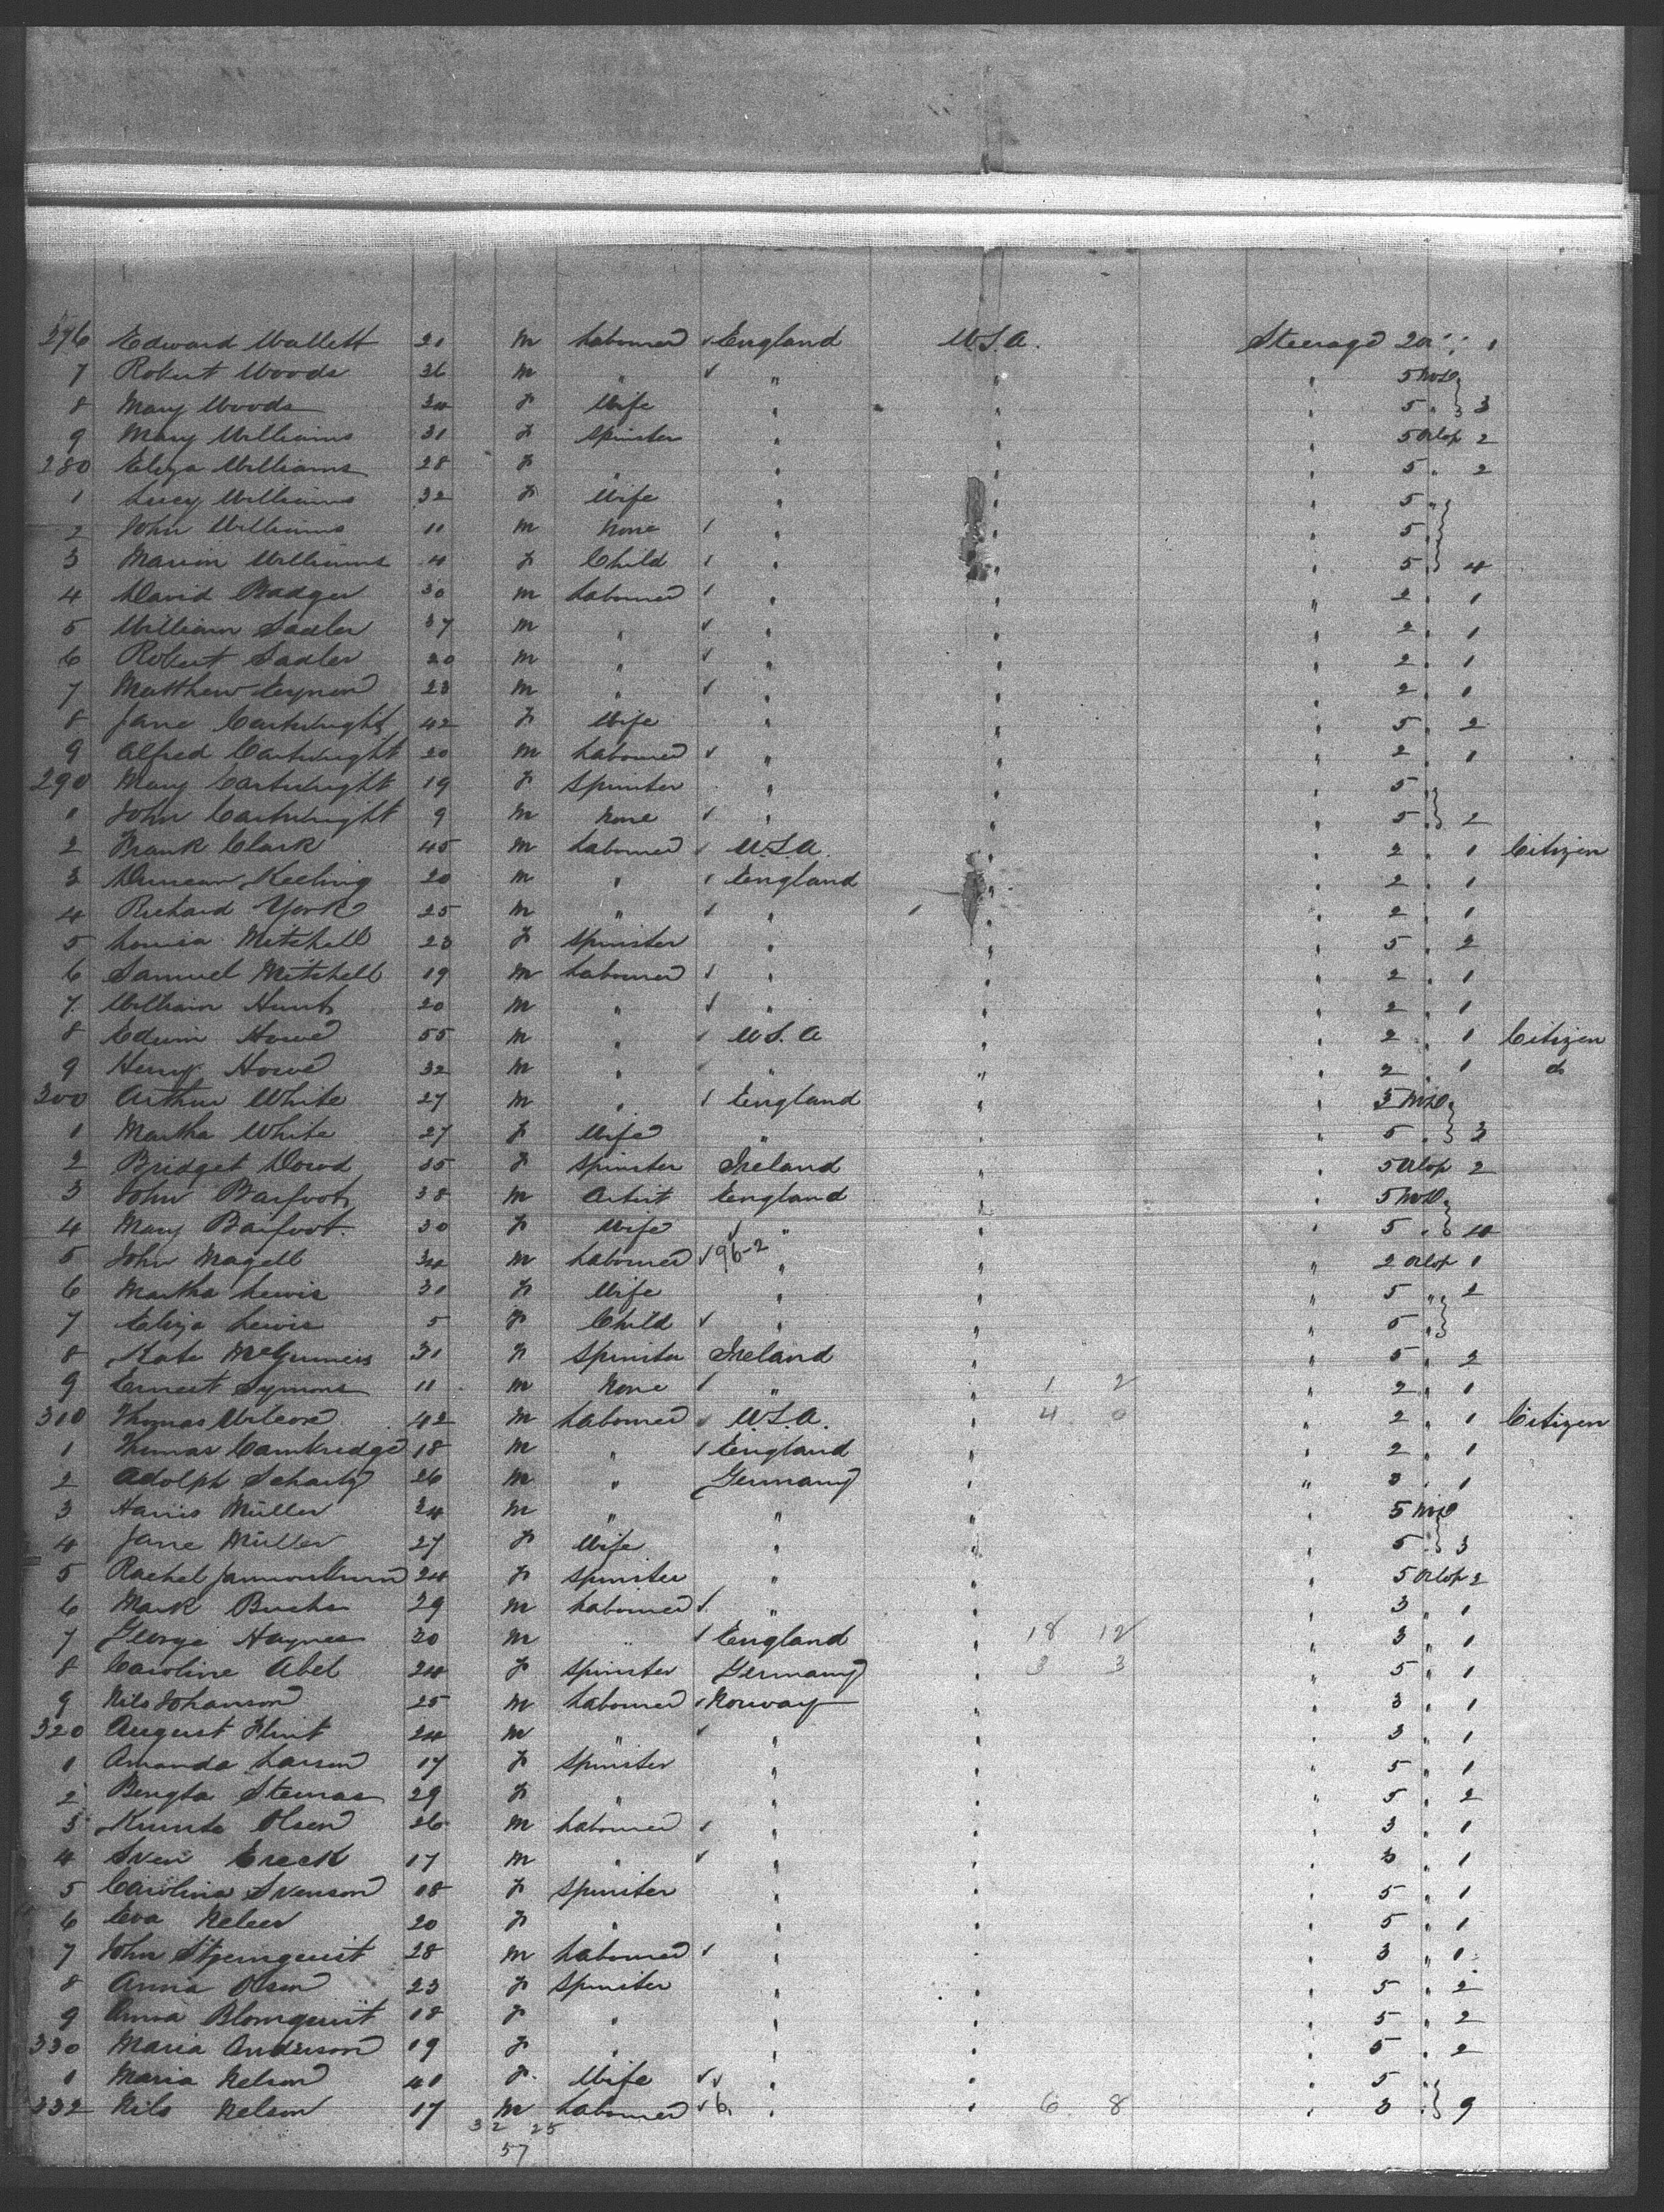 276 Edward Wallett 21 m Labourer √ England U.S.A. Steerage 2 a 1
7 Robert Woods 36 m " √ " " " 5 Mid
8 Mary Woods 34 f Wife " " " 5 " } 3
9 Mary Williams 31 f Spinster " " " 5 Orlop 2
280 Eliza Williams 28 f " " " " 5 " 2
1 Lucy Williams 32 f Wife " " " 5 "
2 John Williams 11 m None / " " " 5
3 Marion Williams 4 f Child / " " " 5 } 4
4 David Badger 30 m Labourer / " " " 2 " 1
5 William Sadler 37 m " √ " " " 2 " 1
6 Robert Sadler 20 m " √ " " " 2 " 1
7 Matthew Eynon 23 m " √ " " " 2 " 1
8 Jane Cartwright 42 f Wife " " " 5 " 2
9 Alfred Cartwright 20 m Labourer √ " " " 2 " 1
290 Mary Cartwright 19 f Spinster " " " 5 "
1 John Cartwright 9 m None √ " " " 5 } 2
2 Frank Clark 45 m Labourer √ U.S.A. " " 2 " 1 Citizen
3 Duncan Keeling 20 m " / England " " 2 " 1
4 Richard York 25 m " √ " " " 2 " 1
5 Louisa Mitchell 23 f Spinster " " " 5 " 2
6 Samuel Mitchell 19 m Labourer √ " " " 2 " 1
7 William Hunt 20 m " √ " " " 2 " 1
8 Edwin Howe 55 m " √ U.S.A " " 2 " 1 Citizen
9 Henry Howe 32 m " √ " " " 2 " 1 do
300 Arthur White 27 m " / England " " 5 Mid
1 Martha White 27 f Wife " " " 5 " } 3
2 Bridget Dowd 35 f Spinster Ireland " " 5 Orlop 2
3 John Barfoot 38 m Artist England " " 5 Mid
4 Mary Barfoot 30 f Wife √ " " " 5 " } 10
5 John Magell 34 m Labourer √ 96-2 " " " 2 Orlop 1
6 Martha Lewis 31 f Wife " " " 5 " 2
7 Eliza Lewis 5 f Child √ " " " 5 " }
8 Kate McGuiness 31 f Spinster Ireland " " 5 " 2
9 Ernest Symons 11 m None / " " 1 2 " 2 " 1
310 Thomas Wilcove 42 m Labourer √ U.S.A. " 4 0 " 2 " 1 Citizen
1 Thomas Cambridge 18 m " / England " " 2 " 1
2 Adolph Schartz 26 m " Germany " " 3 " 1
3 Harris Müller 24 m " " " " 5 Mid
4 Jane Müller 27 f Wife " " " 5 " } 3
5 Rachel 24 f Spinster " " " 5 Orlop 2
6 Mark Buchs 29 m Labourer √ " " " 3 " 1
7 George Haynes 30 m " / England " 18 12 " 3 " 1
8 Caroline Abel 24 f Spinster Germany " 3 3 " 5 " 1
9 Nils Johanson 25 m Labourer / Norway " " 3 " 1
320 August Flint 24 m " √ " " " 3 " 1
1 Amanda Larson 17 f Spinster " " " 5 " 1
2 Bengta Stenas 29 f " " " " 5 " 2
3 Olsen 26 m Labourer √ " " " 3 " 1
4 Sven Ereck 17 m " √ " " " 3 " 1
5 Carolina Svenson 18 f Spinster " " " 5 " 1
6 Eva 20 f " " " " 5 " 1
7 John Stjernquist 28 m Labourer √ " " " 3 " 1
8 Anna Olson 23 f Spinster " " " 5 " 2
9 Anna Blomquist 18 f " " " " 5 " 2
330 Maria Anderson 19 f " " " " 5 " 2
1 Maria Nelson 41 f Wife √√ " " " 5 "
332 Nils Nelson 17 m Labourer √ 6 " " 6 8 " 3 " } 9
32 25
57